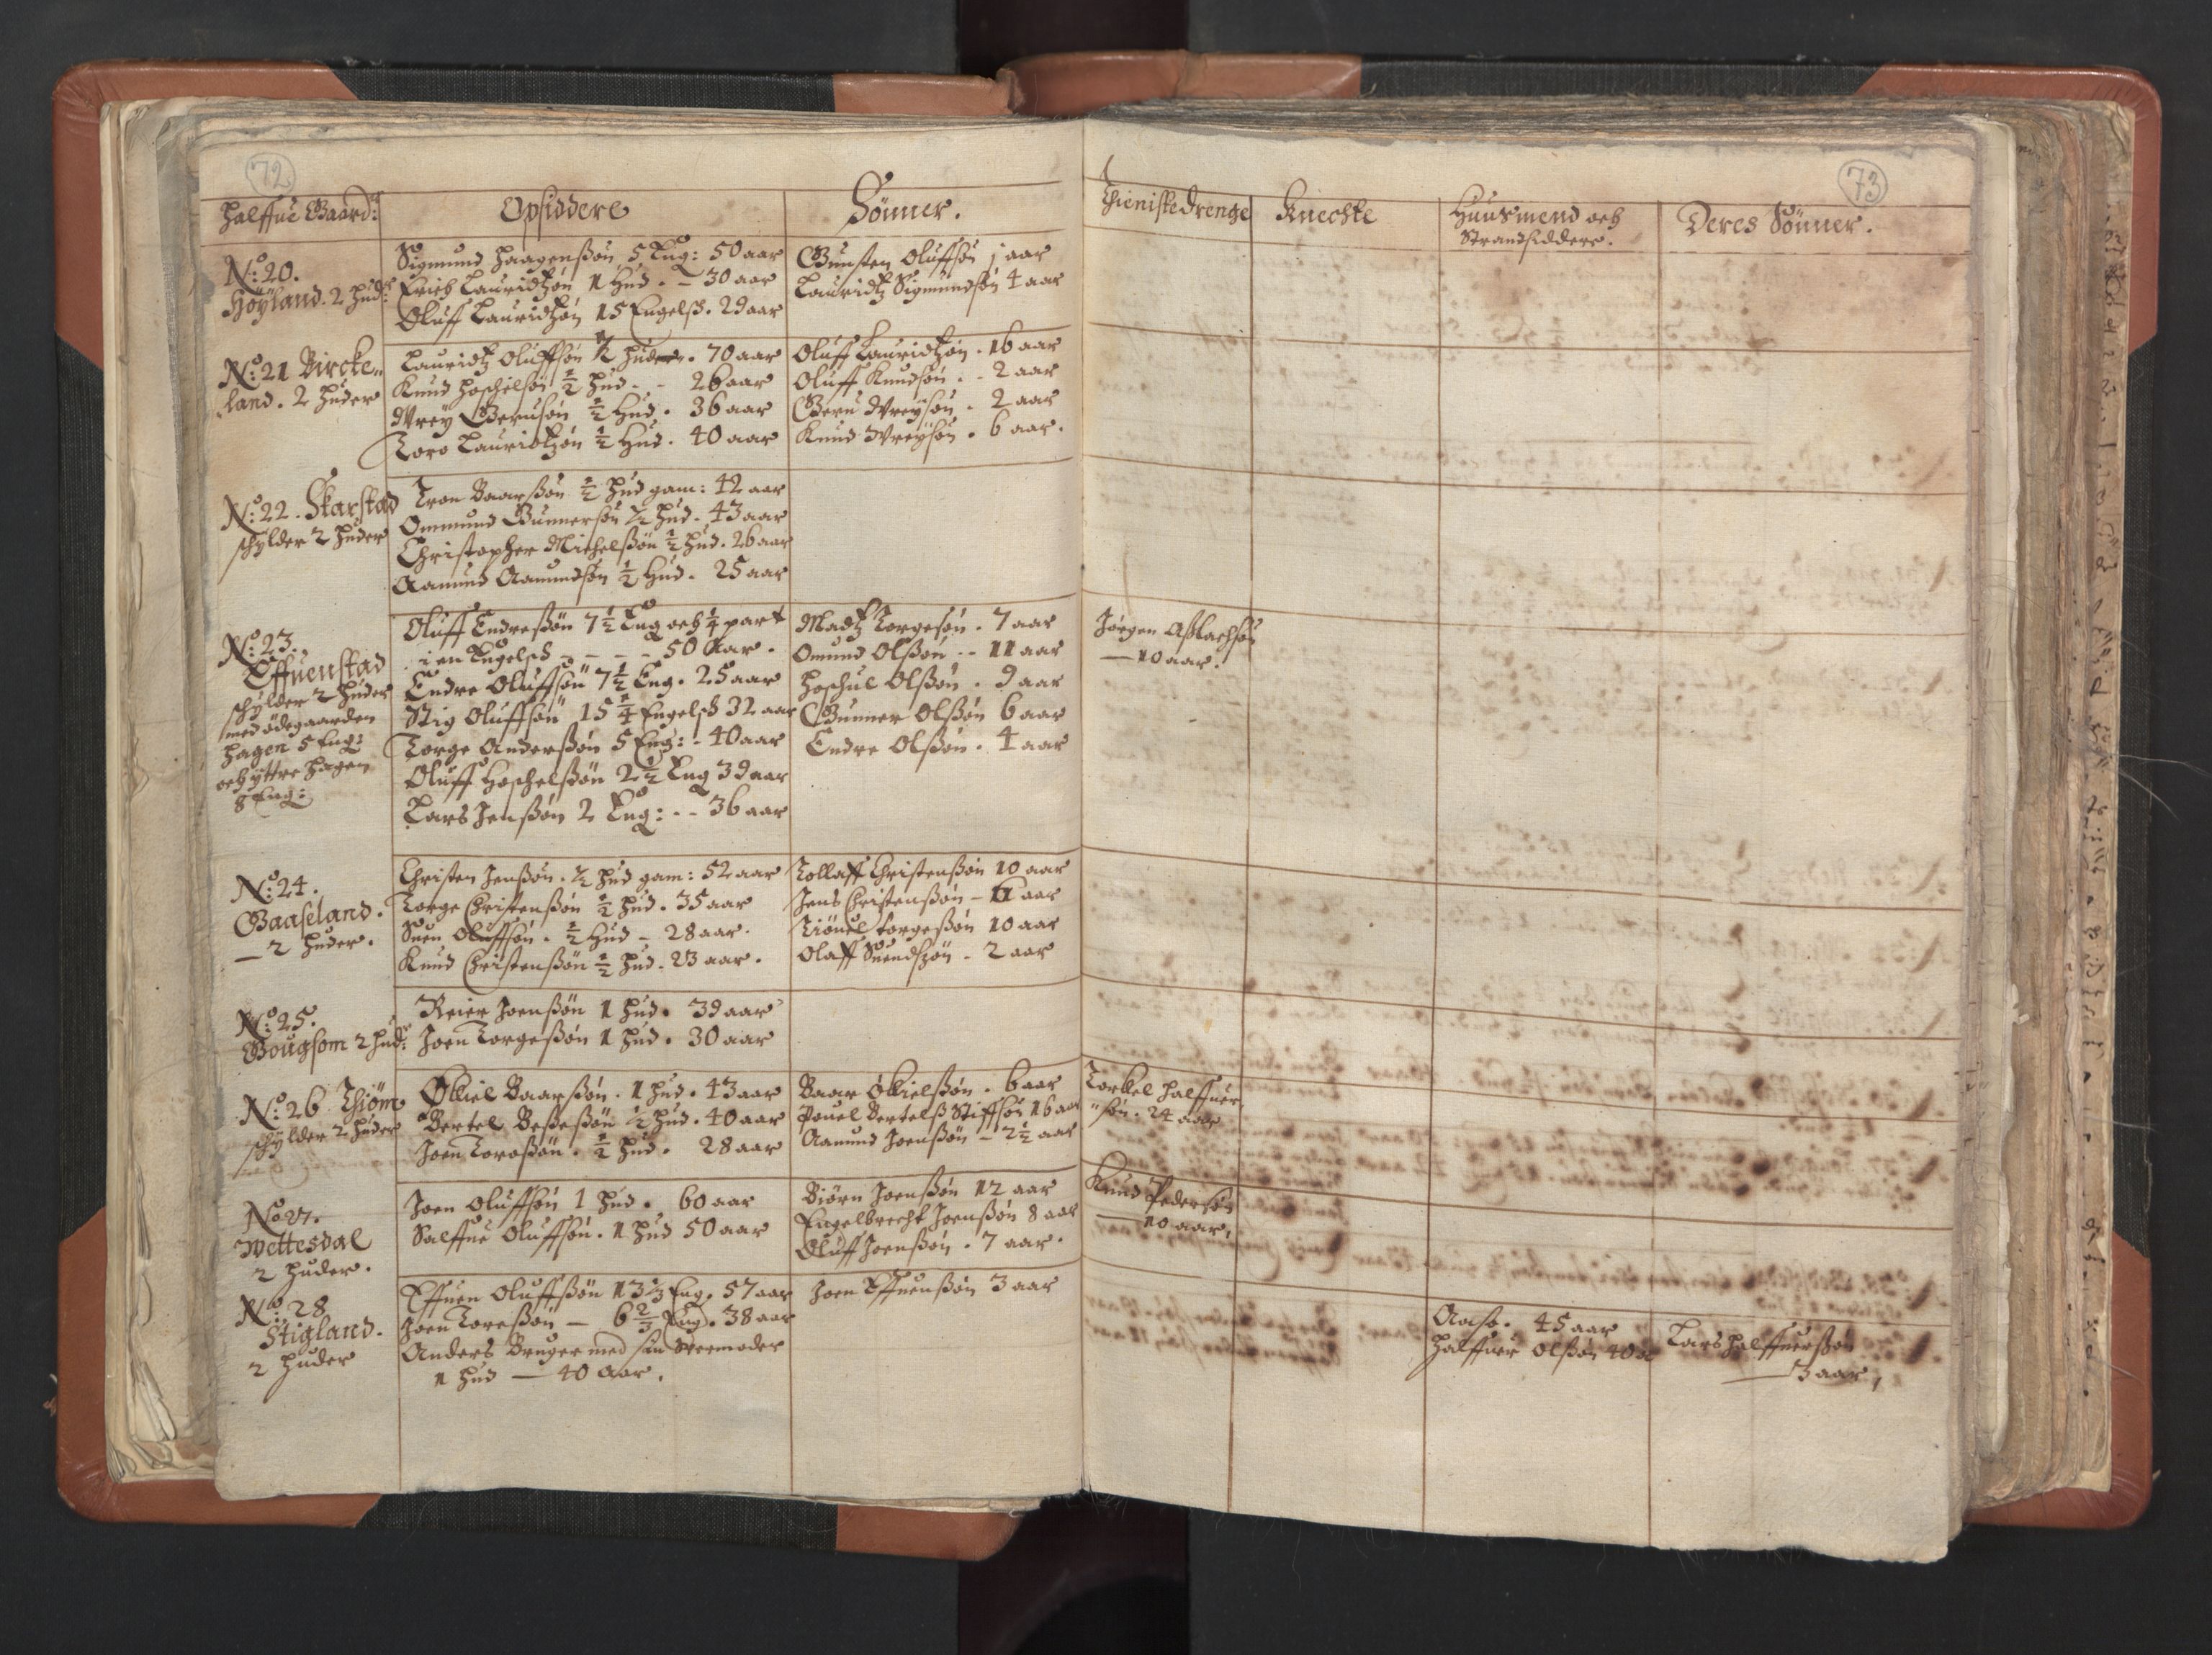 72
Halffue Gaard:
Opsiddere
Sönner.
No: 20.
Höyland. 2 Hud:
Sigmund Haagenßön 5 Eng: 50 aar
Erich Lauridtzön 1 Hud. - 30 aar
Oluff Lauridtzön 15 Engelß. 29 aar
Gunsten Oluffsön j aar
Lauridtz Sigmundsön 4 aar
No: 21 Bircke„
land. 2 Huder
Lauridtz Oluffsön ½ Huder. 70 aar
Knud Hoschelsön ½ Hud - - 26 aar
Wrey Gerusön ½ Hud. 36 aar
Toro Lauridtzön ½ Hud. 40 aar
Oluff Lauridtzön. 16 aar
Oluff Knudsön. - 2 aar
Geru Wreysön. 2 aar
Knud Wreysön. 6 aar.
No: 22. Skarstad
schylder 2 Huder
Tron Baarßön ½ Hud gam: 42 aar
Ommund Gunnersön ½ Hud. 43 aar
Christopher Michelßön ½ Hud. 26 aar
Aamund Aamundsön ½ Hud. 25 aar
No: 23.
Effuenstad
schylder 2 Huder
med ödegaarden
Hagen 5 Eng:
och yttre Hagen
8 Eng:
Oluff Endreßön 7½ Eng och ¼ part
i en Engelß - - - - 50 Aar.
Endre Oluffsön 7½ Eng. 25 aar
Stig Oluffsön 15¼ Engelß 32 aar
Torge Anderßön 5 Eng: - 40 aar
Oluff Hoschelßön 2½ Eng 39 aar
Lars Jenßön 2 Eng: - - 36 aar
Madtz Torgesön. 7 aar
Omund Olßön - - 11 aar
Hoschul Olßön. 9 aar
Gunner Olßön 6 aar
Endre Olßön. 4 aar
No: 24.
Gaaseland.
— 2 Huder.
Christen Jenßön. ½ Hud gam: 52 aar
Torge Christenßön ½ Hud. 35 aar
Suen Oluffsön. ½ Hud - 28 aar.
Knud Christenßön ½ Hud. 23 aar.
Tollaff Christenßön 10 aar
Jens Christenßön - 6 aar
Tiöuel Torgeßön 10 aar
Olaff Suendszön - 2 aar
No: 25.
Gougsom 2 Hud:
Reier Joenßön 1 Hud. 39 aar
Joen Torgeßön 1 Hud. 30 aar
No: 26 Thiöm
schylder 2 Huder
Ökiel Baarßön. 1 Hud. 43 aar
Bertel Beßeßön ½ Hud. 40 aar
Joen Toroßön. ½ Hud. 28 aar
Baar Ökielßön. 6 aar
Pouel Bertelß Stiffsön 16 aar
Aamund Joenßön - 2½ aar
No 27.
Wettesdal
2 Huder.
Joen Oluffsön 1 Hud. 60 aar
Salffue Oluffsön. 1 Hud 50 aar
Biörn Joenßön 12 aar
Engelbrecht Joenßön 8 aar
Oluff Joenßön. 7 aar.
No: 28
Stigland.
2 Huder
Effuen Oluffßön 13⅓ Eng. 57 aar
Joen Toreßön — 6⅔ Eng. 38 aar
Anders Bruger med sin Veermoder
1 Hud — 40 Aar.
Joen Effuenßön 3 aar
73
Thienistedrenge
Knechte
Huusmend och
Strandsiddere.
Deres Sönner.
Jörgen Aßlachsön
— 10 aar.
Torkel Halffuer
„sön. 24 aar
Knud Pedersön
— 10 aar,
Aasø. 45 aar
Halffuer Olßön 40 a
Lars Halffuerßön
— 3 aar,